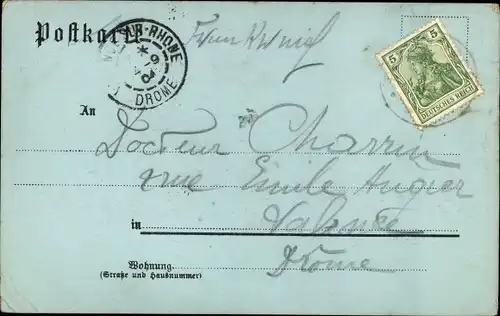 Postkarte
-RHONE
DROME
5
DEUTSCHES REICH
An
Docteur Charrin
rue Emile Augier
in Valence
Drôme
Wohnung
(Straße und Hausnummer)